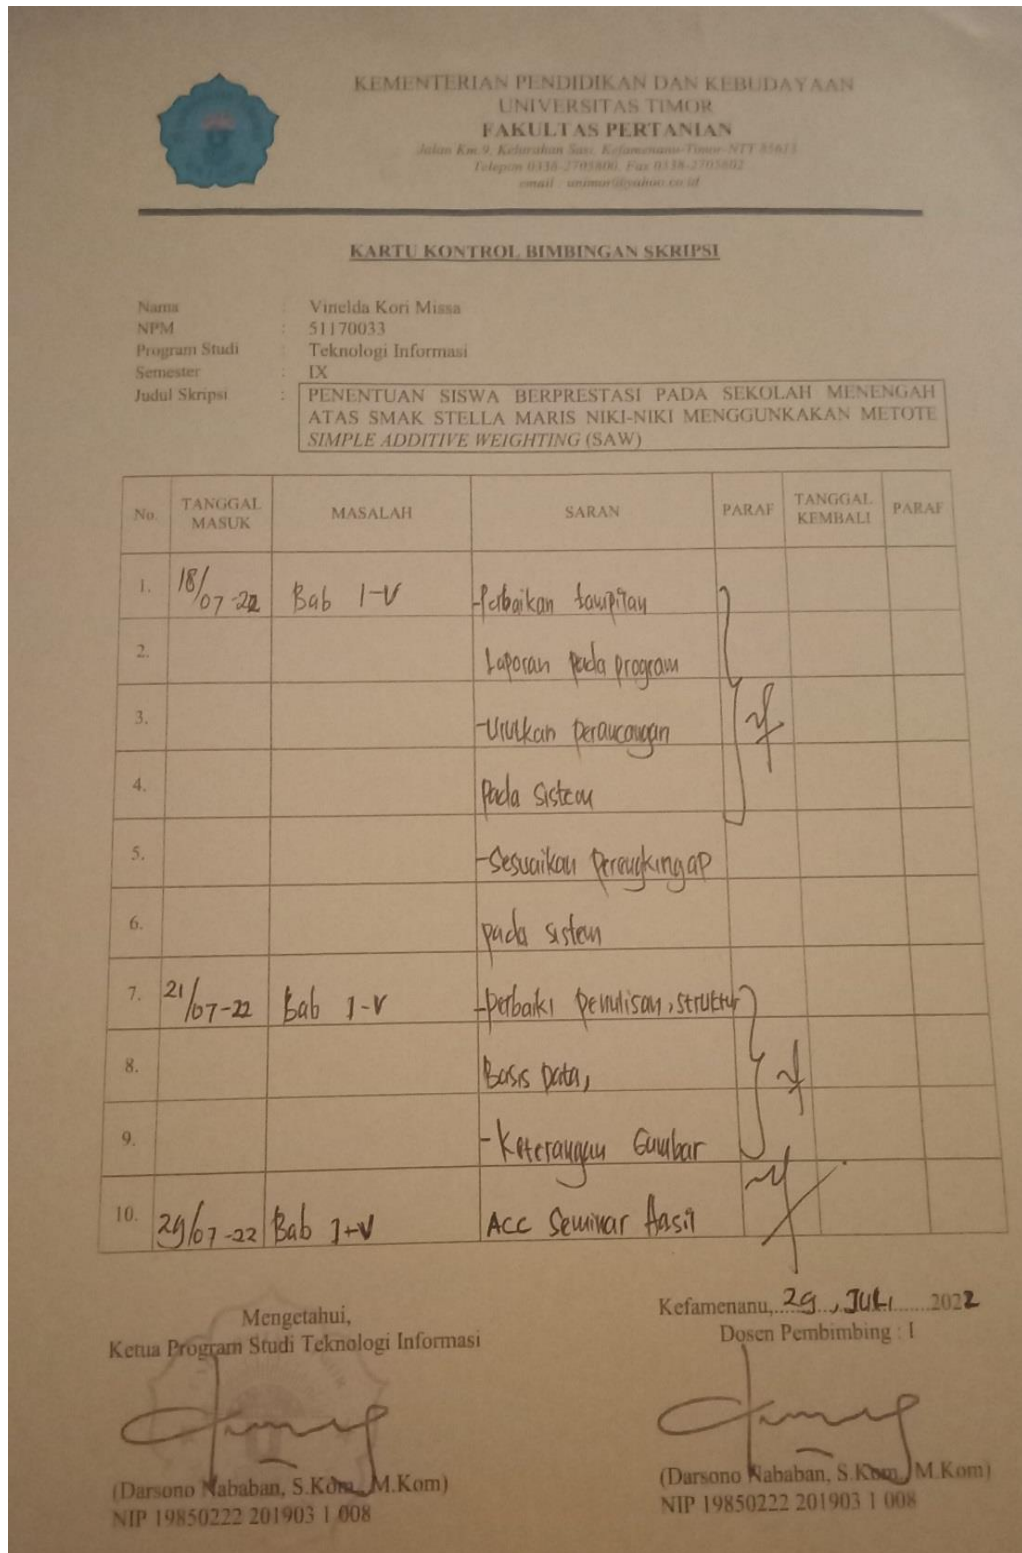 KEMENTERIAN PENDIDIKAN DAN KEBUDAYAAN
UNIVERSITAS TIMOR
FAKULTAS PERTANIAN
Jalan Km.9, Kelurahan Sasi, Kefamenanu-Timor-NTT 85613
Telepon 0338-2705800, Fax 0338-2705802
email : unimor@yahoo.co.id
KARTU KONTROL BIMBINGAN SKRIPSI
Nama : Vinelda Kori Missa
NPM : 51170033
Program Studi : Teknologi Informasi
Semester : IX
Judul Skripsi : PENENTUAN SISWA BERPRESTASI PADA SEKOLAH MENENGAH
ATAS SMAK STELLA MARIS NIKI-NIKI MENGGUNKAKAN METOTE
SIMPLE ADDITIVE WEIGHTING (SAW)
No. TANGGAL MASUK MASALAH SARAN PARAF TANGGAL KEMBALI PARAF
1. 18/07-22 Bab I-V -Perbaikan tampilan
2. Laporan pada program
3. -Urutkan perancangan
4. Pada sistem
5. -Sesuaikan Perangkingan
6. pada sistem
7. 21/07-22 Bab I-V -perbaiki penulisan, struktur
8. Basis Data,
9. - Keterangan Gambar
10. 29/07-22 Bab I-V ACC Seminar Hasil
Kefamenanu, 29, JULI 2022
Mengetahui,
Ketua Program Studi Teknologi Informasi
Dosen Pembimbing : I
(Darsono Nababan, S.Kom., M.Kom)
NIP 19850222 201903 1 008
(Darsono Nababan, S.Kom., M.Kom)
NIP 19850222 201903 1 008